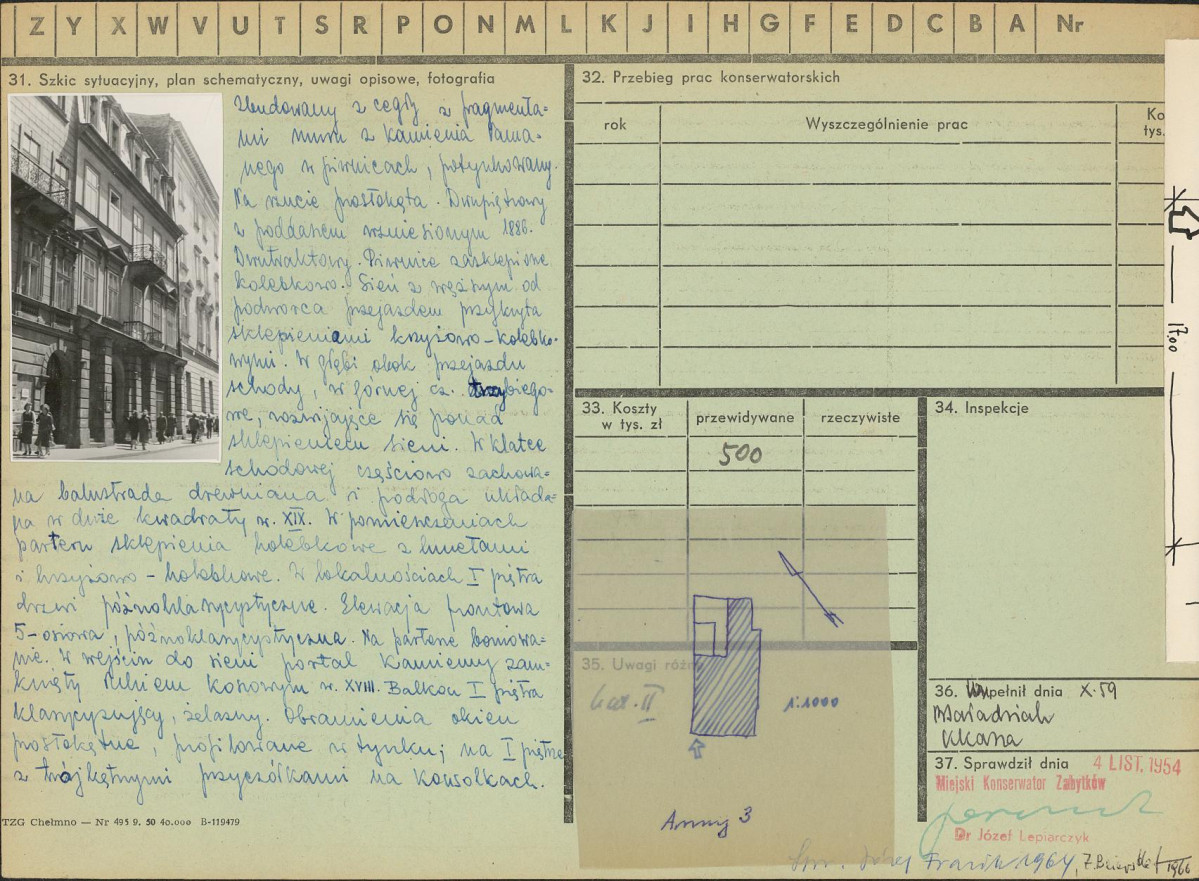 Z Y X W V U T S R P O N M L K J I H G F E D C B A Nr
31. Szkic sytuacyjny, plan schematyczny, uwagi opisowe, fotografia
Zbudowany z cegły z fragmenta=
mi muru z kamienia łama=
nego w piwnicach, potynkowany.
Na rzucie prostokąta. Dwupiętrowy
z poddaszem wzniesionym 1888.
Dwutraktowy. Piwnice zasklepione
kolebkowo. Sień z węższym od
podwórca przejazdem przykryta
sklepieniami krzyżowo-kolebko=
wymi. W głębi obok przejazdu
schody, w górnej cz. trzybiego=
we, rozwijające się ponad
sklepieniem sieni. W klatce
schodowej częściowo zachowa=
na balustrada drewniana i podłoga układa=
na w duże kwadraty w. XIX. W pomieszczeniach
parteru sklepienia kolebkowe z lunetami
i krzyżowo-kolebkowe. W lokalnościach I piętra
drzwi późnoklasycystyczne. Elewacja frontowa
5-osiowa, późnoklasycystyczna. Na parterze boniowa=
nie. W wejściu do sieni portal kamienny zam=
knięty łukiem koszowym w. XVIII. Balkon I piętra
klasycyzujący, żelazny. Obramienia okien
prostokątne, profilowane w tynku; na I piętrze
z trójkątnymi przyczółkami na konsolkach.
TZG Chełmno — Nr 495 9. 50 40.000 B-119479
32. Przebieg prac konserwatorskich
rok Wyszczególnienie prac Ko
tys.
17.00
33. Koszty
w tys. zł
przewidywane rzeczywiste
500
34. Inspekcje
35. Uwagi różne
kat. II
1:1000
Anny 3
36. Wypełnił dnia X.59
37. Sprawdził dnia 4 LIST. 1954
Miejski Konserwator Zabytków
Dr Józef Lepiarczyk
Spr. Józef Frazik 1964, 1966